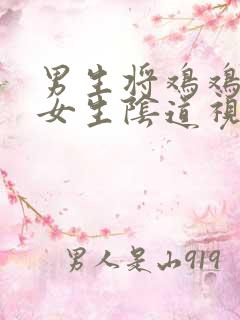 男生将鸡鸡
女生陰道視
男人是山919